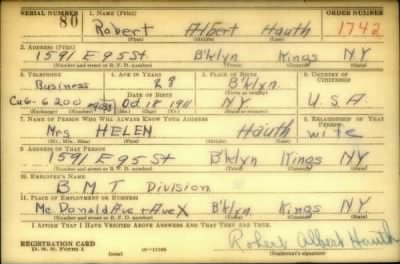 SERIAL NUMBER 1. NAME (Print) ORDER NUMBER
80 Robert Albert Hauth 1742
(First) (Middle) (Last)
2. ADDRESS (Print)
1591 E 95 St B'klyn Kings NY
(Number and street or R. F. D. number) (Town) (County) (State)
3. TELEPHONE 4. AGE IN YEARS 5. PLACE OF BIRTH 6. COUNTRY OF CITIZENSHIP
Business 28 B'klyn
DATE OF BIRTH
Cu6-6200 Oct 18 1911 NY U.S.A
(Exchange) (Number) (Mo.) (Day) (Yr.) (State or country)
7. NAME OF PERSON WHO WILL ALWAYS KNOW YOUR ADDRESS 8. RELATIONSHIP OF THAT PERSON
Mrs HELEN Hauth wife
(Mr., Mrs., Miss) (First) (Middle) (Last)
9. ADDRESS OF THAT PERSON
1591 E 95 St B'klyn Kings NY
(Number and street or R. F. D. number) (Town) (County) (State)
10. EMPLOYER'S NAME
B.M.T Division
11. PLACE OF EMPLOYMENT OR BUSINESS
Mc Donald Ave + Ave X B'klyn Kings NY
(Number and street or R. F. D. number) (Town) (County) (State)
I AFFIRM THAT I HAVE VERIFIED ABOVE ANSWERS AND THAT THEY ARE TRUE.
Robert Albert Hauth
REGISTRATION CARD
D. S. S. Form 1 (over) (Registrant's signature)